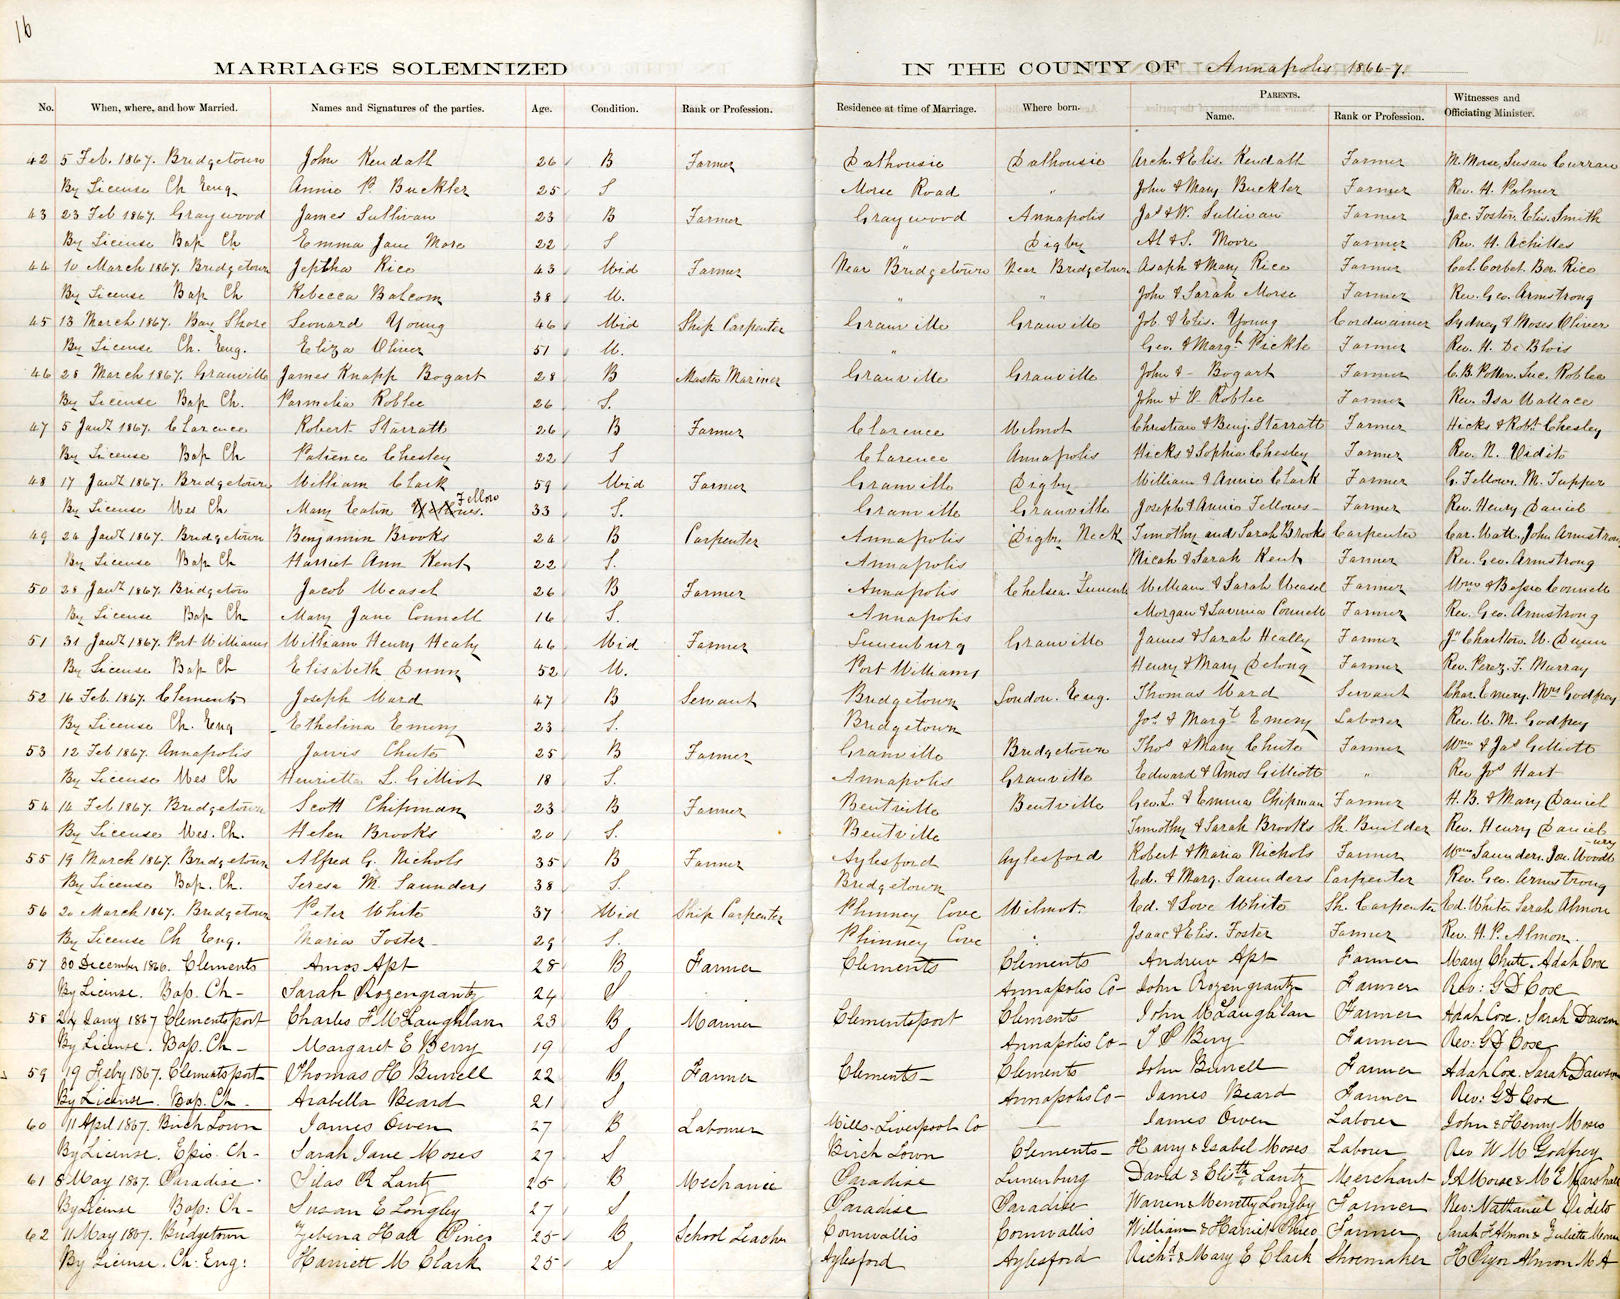 16
MARRIAGES SOLEMNIZED IN THE COUNTY OF Annapolis 1866-7.
No. When, where, and how Married. Names and Signatures of the parties. Age. Condition. Rank or Profession. Residence at time of Marriage. Where born. PARENTS. Name. Rank or Profession. Witnesses and Officiating Minister.
42 5 Feb. 1867. Bridgetown John Kendall 26 B Farmer Dalhousie Dalhousie Arch. & Elis. Kendall Farmer M. Morse, Susan Curran
By License Ch Eng. Annie P. Buckler 25 S Morse Road " John & Mary Buckler Farmer Rev. H. Palmer
43 23 Feb 1867. Graywood James Sullivan 23 B Farmer Graywood Annapolis Jas & W. Sullivan Farmer Jac. Foster, Elis. Smith
By License Bap Ch Emma Jane More 22 S " Digby Al & S. Moore Farmer Rev. H. Achilles
44 10 March 1867. Bridgetown Jeptha Rice 43 Wid Farmer Near Bridgetown Near Bridgetown Asaph & Mary Rice Farmer Cal. Corbet. Ben. Rice
By License Bap Ch Rebecca Balcom 38 W. " " John & Sarah Morse Farmer Rev. Geo. Armstrong
45 13 March 1867. Bay Shore Leonard Young 46 Wid Ship Carpenter Granville Granville Job. & Elis. Young Cordwainer Sydney & Moses Oliver
By License Ch. Eng. Eliza Oliver 51 W. " Geo. & Margt Pickle Farmer Rev. H. De Blois
46 28 March 1867. Granville James Knapp Bogart 28 B Master Mariner Granville Granville John & - Bogart Farmer C. B. Potter. Luc. Roblee
By License Bap Ch. Parmelia Roblee 26 S. John & W. Roblee Farmer Rev. Isa Wallace
47 5 Jany 1867. Clarence Robert Starratt 26 B Farmer Clarence Wilmot Christian & Benj. Starratt Farmer Hicks & Robt Chesley
By License Bap Ch Patience Chesley 22 S Clarence Annapolis Hicks & Sophia Chesley Farmer Rev. N. Vidito
48 17 Jany 1867. Bridgetown William Clark 59 Wid Farmer Granville Digby William & Annie Clark Farmer G. Fellows. M. Tupper
By License Wes Ch Mary Eaton Fellows 33 S. Granville Granville Joseph & Annie Fellows Farmer Rev. Henry Daniel
49 24 Jany 1867. Bridgetown Benjamin Brooks 24 B Carpenter Annapolis Digby Neck Timothy and Sarah Brooks Carpenter Car. Watt. John Armstrong
By License Bap Ch Harriet Ann Kent 22 S. Annapolis Micah & Sarah Kent Farmer Rev. Geo. Armstrong
50 28 Jany 1867. Bridgetown Jacob Weasel 26 B Farmer Annapolis Chelsea. Lunenb William & Sarah Weasel Farmer Wm & Bapsie Connell
By License Bap Ch Mary Jane Connell 16 S. Annapolis Morgan & Lavinia Connell Farmer Rev. Geo. Armstrong
51 31 Jany 1867. Port Williams William Henry Healy 46 Wid Farmer Lunenburg Granville James & Sarah Healy Farmer Jn Charlton. W. Dunn
By License Bap Ch Elisabeth Dunn 52 W. Port Williams Henry & Mary Delong Farmer Rev. Paraz. F. Murray
52 16 Feb. 1867. Clements Joseph Ward 47 B Servant Bridgetown London. Eng. Thomas Ward Servant Char. Emery. Mrs Godfrey
By License Ch. Eng Ethelina Emery 23 S. Bridgetown Jos & Margt Emery Laborer Rev. W. M. Godfrey
53 12 Feb 1867. Annapolis Jarvis Chute 25 B Farmer Granville Bridgetown Thos & Mary Chute Farmer Wm & Jas Gilliott
By License Wes Ch Henrietta L. Gilliot 18 S. Annapolis Granville Edward & Amos Gilliott " Rev Jos Hart
54 14 Feb 1867. Bridgetown Scott Chipman 23 B Farmer Bentville Bentville Geo. L. & Emma Chipman Farmer H. B. & Mary Daniel
By License Wes. Ch. Helen Brooks 20 S. Bentville Timothy & Sarah Brooks Sh. Builder Rev. Henry Daniel
55 19 March 1867. Bridgetown Alfred G. Nichols 35 B Farmer Aylesford Aylesford Robert & Maria Nichols Farmer Wm Saunders. Jon. Woodbury
By License Bap. Ch. Teresa M. Saunders 38 S. Bridgetown Ed. & Marg. Saunders Carpenter Rev. Geo. Armstrong
56 20 March 1867. Bridgetown Peter White 37 Wid Ship Carpenter Phinney Cove Wilmot. Ed. & Love White Sh. Carpenter Ed. White. Sarah Almon
By License Ch Eng. Maria Foster 29 S. Phinney Cove Isaac & Elis. Foster Farmer Rev. H. P. Almon.
57 30 December 1866. Clements Amos Apt 28 B Farmer Clements Clements Andrew Apt Farmer Mary Chute. Adah Cox
By License. Bap. Ch - Sarah Rozengrantz 24 S Annapolis Co - John Rozengrantz Farmer Rev: G D Cox
58 24 Jany 1867 Clementsport Charles F McLaughlan 23 B Mariner Clementsport Clements John McLaughlan Farmer Adah Cox. Sarah Dawson
By License. Bap. Ch - Margaret E Berry 19 S Annapolis Co - T P Berry Farmer Rev: G D Cox
59 19 Feby 1867. Clementsport Thomas H Burrell 22 B Farmer Clements Clements John Burrell Farmer Adah Cox. Sarah Dawson
By License. Bap. Ch - Arabella Beard 21 S Annapolis Co - James Beard Farmer Rev: G D Cox
60 11 April 1867. Birch Town James Owen 27 B Labourer Mills. Liverpool Co — James Owen Laborer John & Henry Moses
By License. Epis. Ch - Sarah Jane Moses 27 S Birch Town Clements - Harry & Isabel Moses Laborer Rev W M Godfrey
61 8 May 1867. Paradise Silas R Lantz 25 B Mechanic Paradise Lunenburg David & Elith Lantz Merchant J A Morse & M E Marshall
By License Bap: Ch - Susan E Longley 27 S Paradise Paradise Warren Menotty Longley Farmer Rev: Nathaniel Vidito
62 11 May 1867. Bridgetown Zebina Hall Pineo 25 B School Teacher Cornwallis Cornwallis William & Harriet Pineo Farmer Sarah F Almon & Juliette
By License. Ch: Eng: Harriett M Clark 25 S Aylesford Aylesford Richd & Mary E Clark Shoemaker H Pryor Almon M A